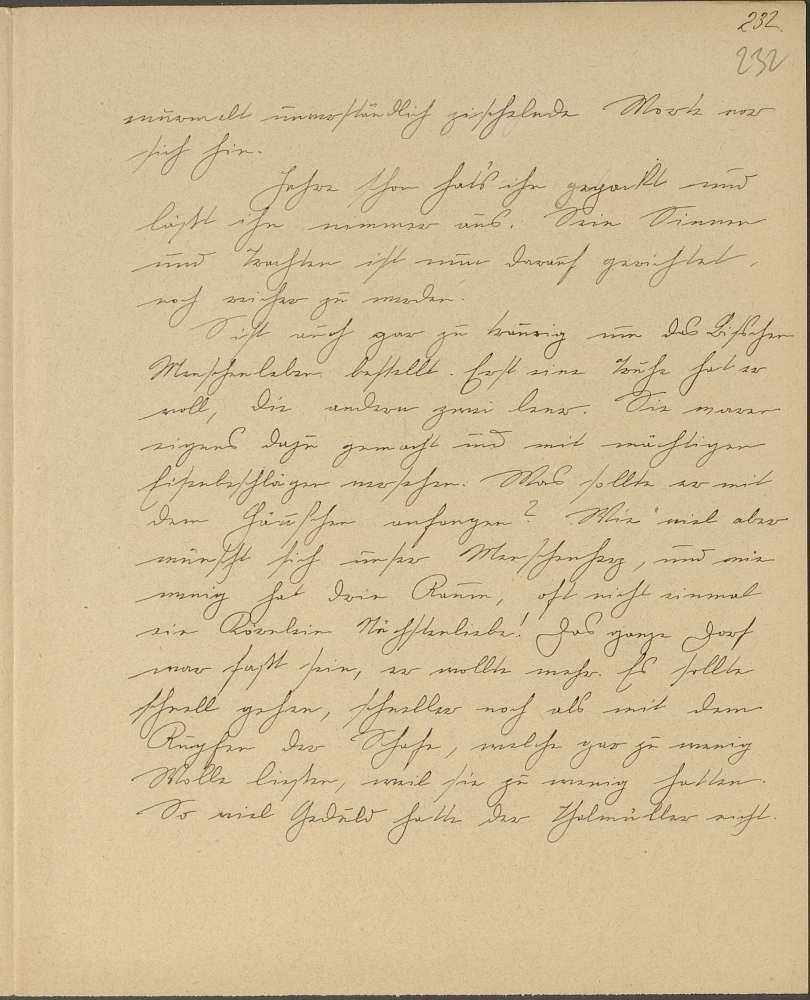 232.
232
murmelt unverständlich zischelnde Worte vor
sich hin.
Jahre schon hat's ihn gepackt und
läßt ihn nimmer aus. Sein Sinnen
und Trachten ist nur darauf gerichtet,
noch reicher zu werden.
S'ist auch gar zu traurig um das Bißchen
Menschenleben bestellt. Erst eine Truhe hat er
voll, die andern zwei leer. Sie waren
eigens dazu gemacht und mit mächtigen
Eisenbeschlägen versehen. Was sollte er mit
dem Häuschen anfangen? Wie viel aber
wünscht sich unser Menschenherz, und wie
wenig hat drin Raum, oft nicht einmal
ein Körnlein Nächstenliebe! Das ganze Dorf
war fast sein, er wollte mehr. Es sollte
schnell gehen, schneller noch als mit dem
der Schafe, welche gar zu wenig
Wolle ließen, weil sie zu wenig hatten.
So viel Geduld hatte der Thalmüller nicht.